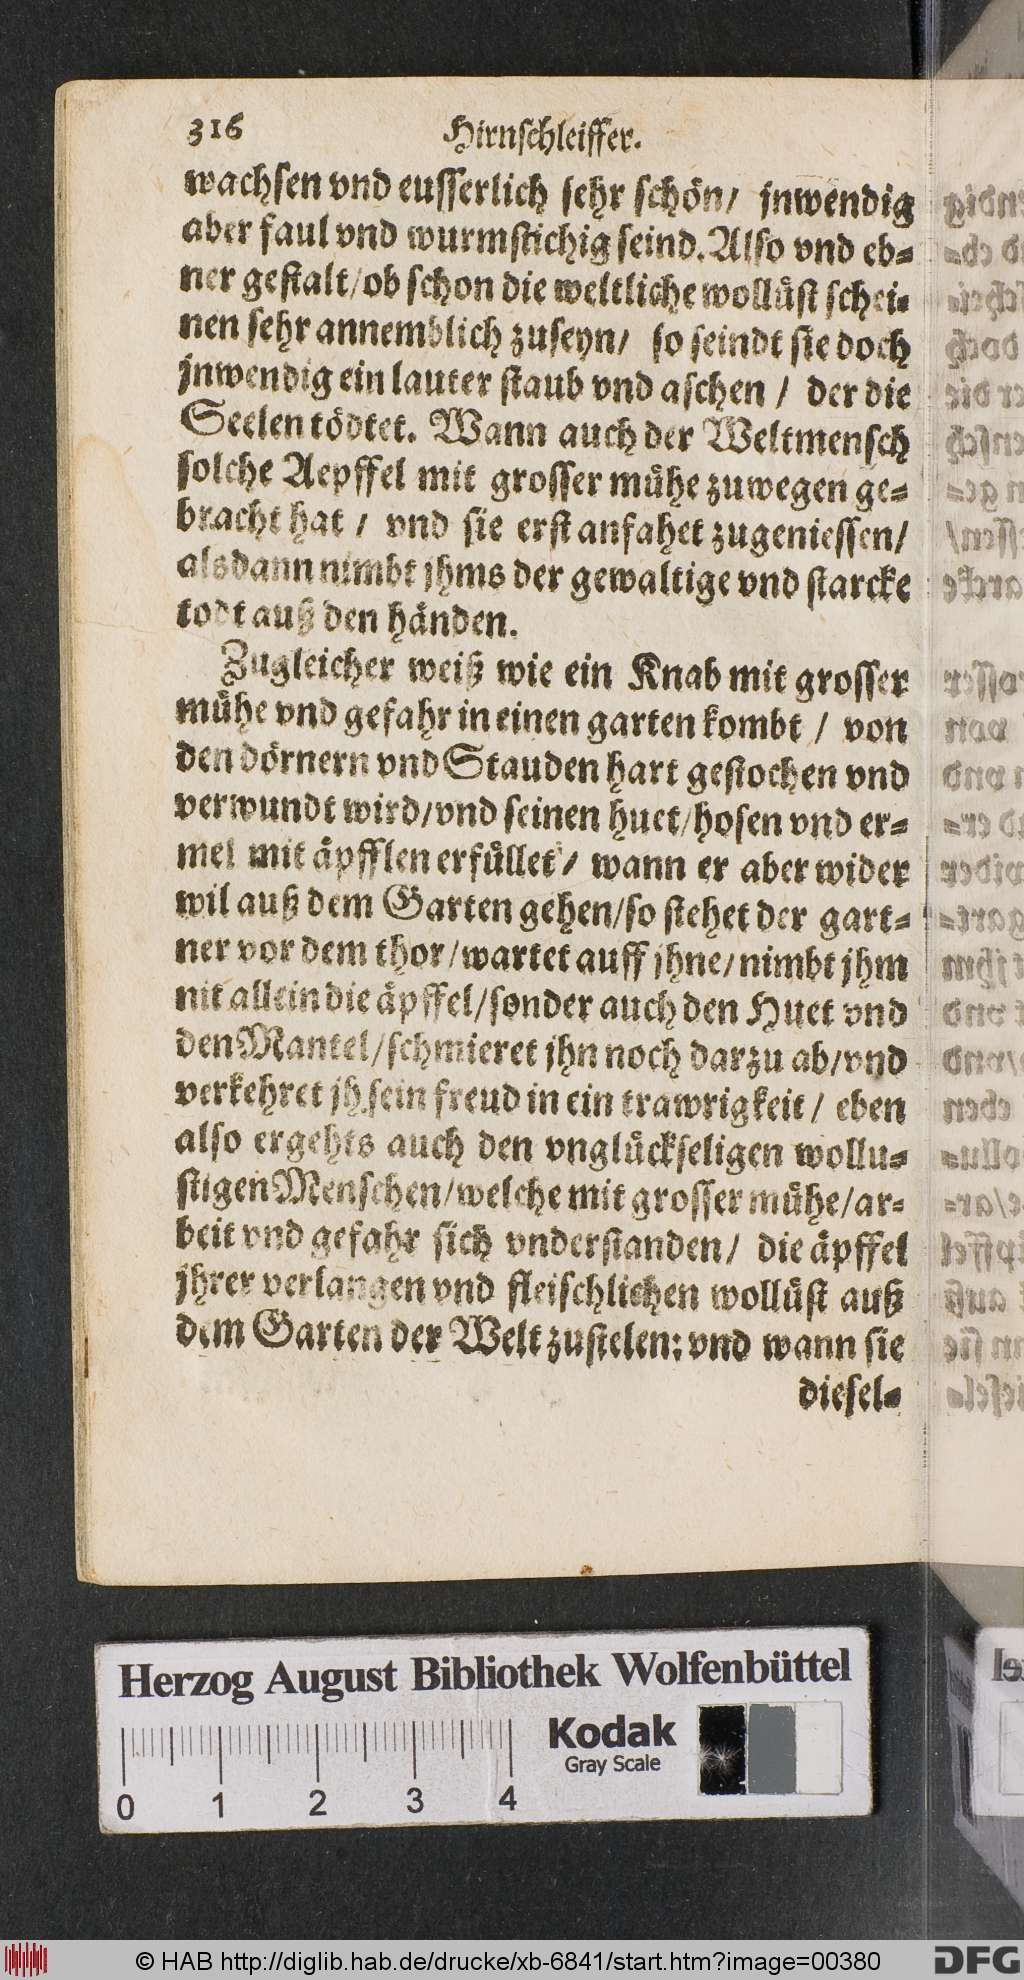 316 Hirnschleiffer.
wachsen vnd eusserlich sehr schön/ jnwendig
aber faul vnd wurmstichig seind. Also vnd eb-
ner gestalt/ob schon die weltliche wollüst schei-
nen sehr annemblich zuseyn/ so seindt sie doch
jnwendig ein lauter staub vnd aschen / der die
Seelen tödtet. Wann auch der Weltmensch
solche Aepffel mit grosser mühe zuwegen ge-
bracht hat / vnd sie erst anfahet zugeniessen/
alsdann nimbt jhms der gewaltige vnd starcke
todt auß den händen.
Zugleicher weiß wie ein Knab mit grosser
mühe vnd gefahr in einen garten kombt / von
den dörnern vnd Stauden hart gestochen vnd
verwundt wird/vnd seinen huet/hosen vnd er-
mel mit äpfflen erfüllet/ wann er aber wider
wil auß dem Garten gehen/so stehet der gart-
ner vor dem thor/wartet auff jhne/nimbt jhm
nit allein die äpffel/sonder auch den Huet vnd
den Mantel/schmieret jhn noch darzu ab/vnd
verkehret jh. sein freud in ein trawrigkeit/ eben
also ergehts auch den vnglückseligen wollu-
stigen Menschen/welche mit grosser mühe/ar-
beit vnd gefahr sich vnderstanden/ die äpffel
jhrer verlangen vnd fleischlichen wollüst auß
dem Garten der Welt zustelen: vnd wann sie
diesel-
Herzog August Bibliothek Wolfenbüttel
Kodak
Gray Scale
0 1 2 3 4
© HAB http://diglib.hab.de/drucke/xb-6841/start.htm?image=00380
DFG